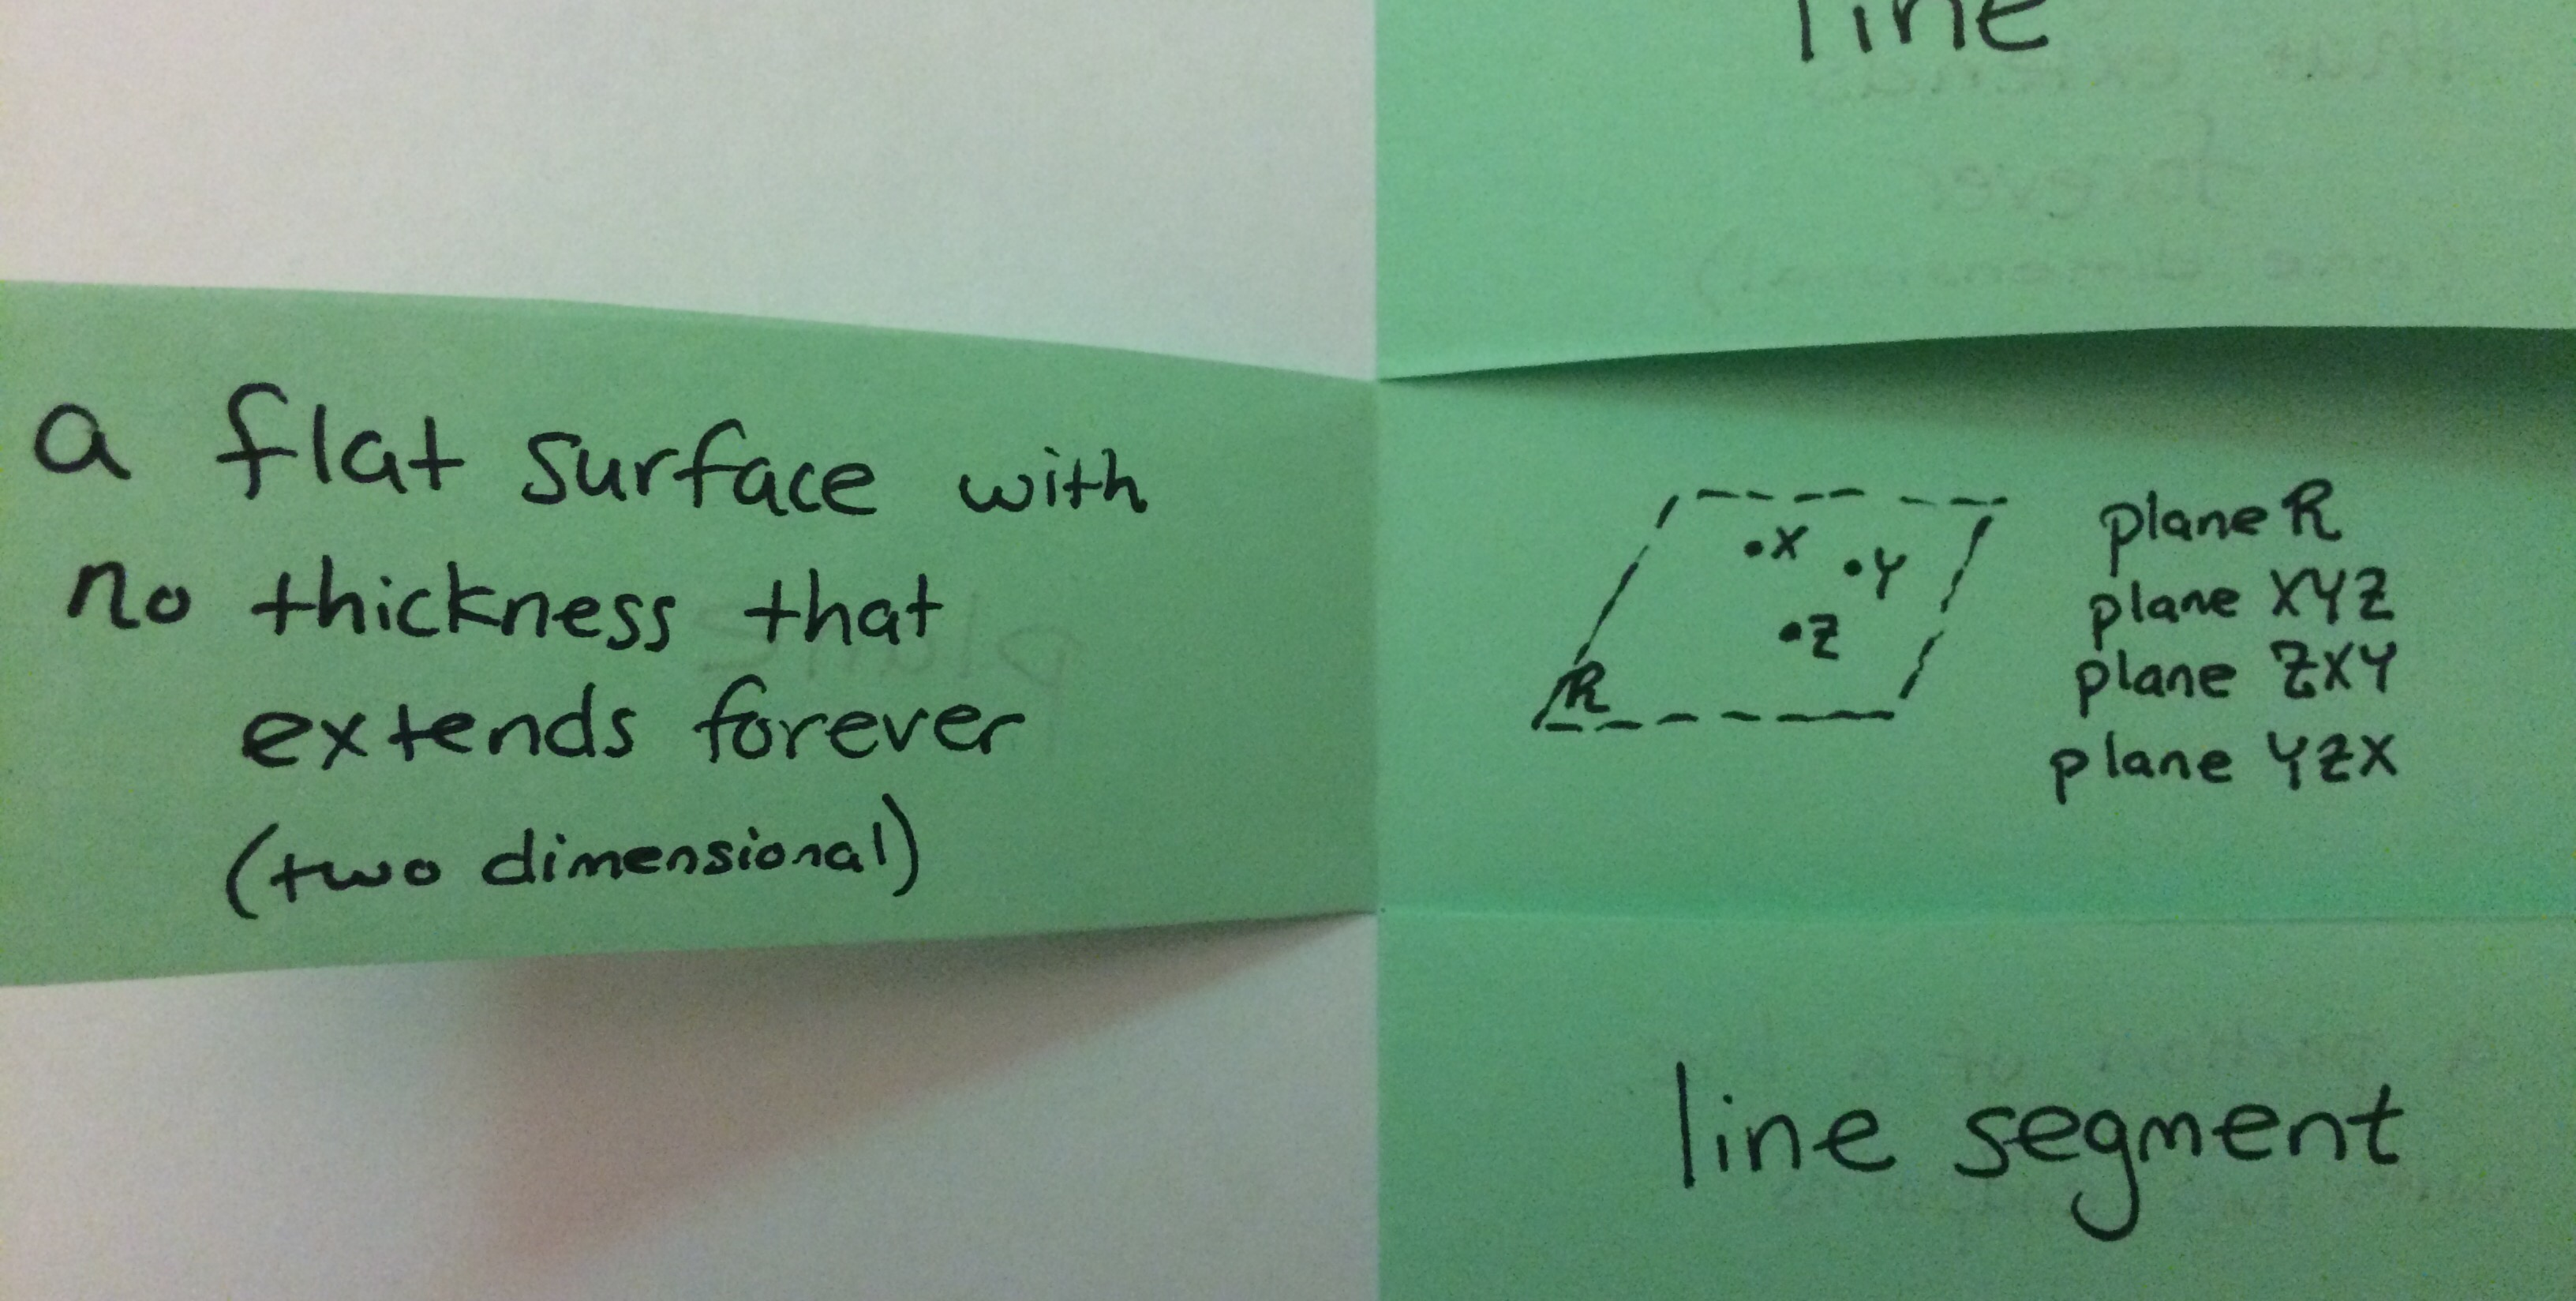 line
a flat surface with
no thickness that
extends forever
(two dimensional)
X
Y
Z
R
plane R
plane XYZ
plane ZXY
plane YZX
line segment